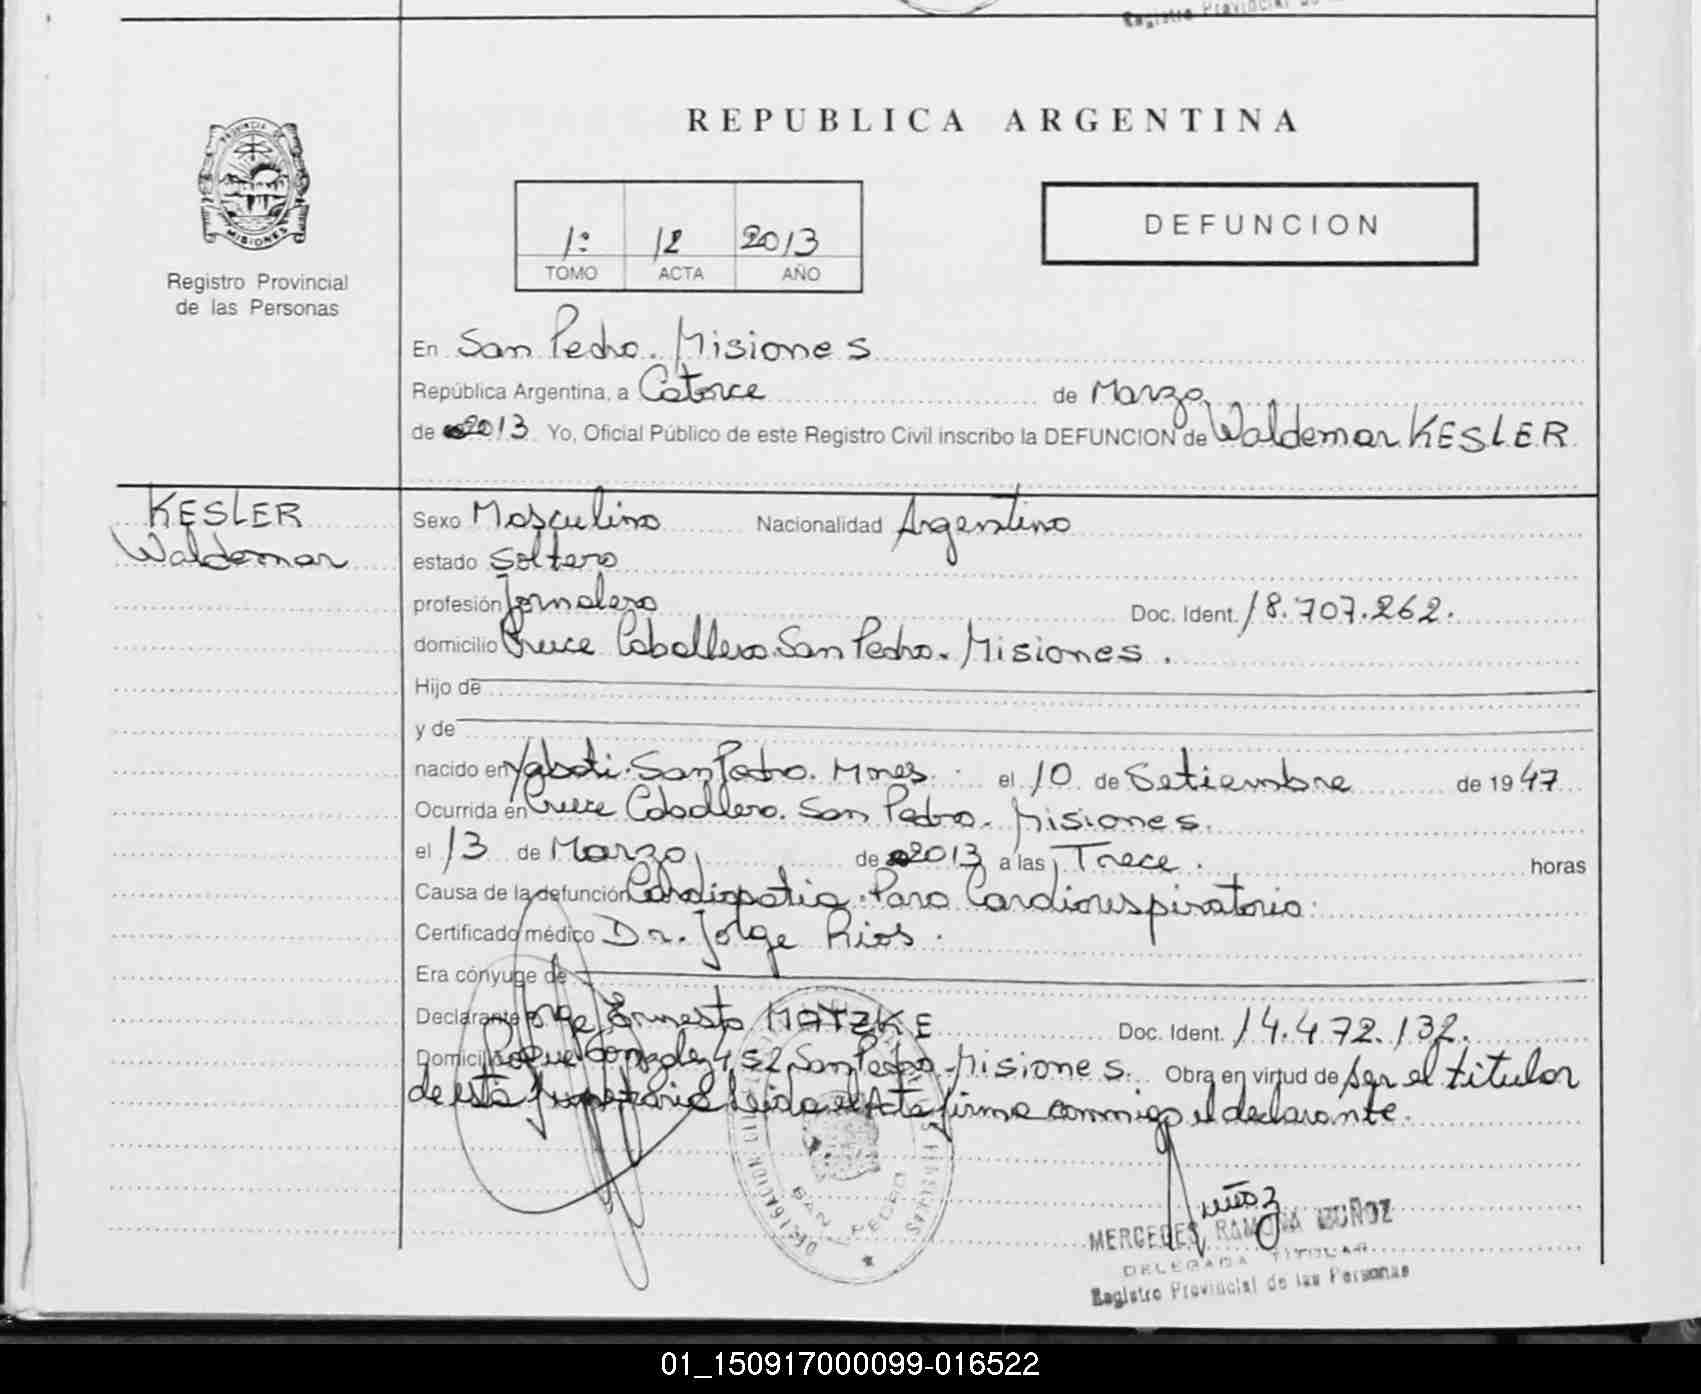 Registro Provincial de
REPUBLICA ARGENTINA
PROVINCIA DE
MISIONES
Registro Provincial
de las Personas
1º 12 2013
TOMO ACTA AÑO
DEFUNCION
En San Pedro. Misiones
República Argentina, a Catorce de Marzo
de 2013 Yo, Oficial Público de este Registro Civil inscribo la DEFUNCION de Waldemar KESLER
KESLER
Waldemar
Sexo Masculino Nacionalidad Argentino
estado Soltero
profesión Jornalero Doc. Ident. 18.707.262.
domicilio Cruce Caballero. San Pedro. Misiones.
Hijo de
y de
nacido en Yaboti. San Pedro. Mnes. el 10 de Setiembre de 1947
Ocurrida en Cruce Caballero. San Pedro. Misiones.
el 13 de Marzo de 2013 a las Trece. horas
Causa de la defunción Cardiopatia. Paro Cardiorespiratorio.
Certificado médico Dr. Jorge Rios.
Era cónyuge de
Declarante Jorge Ernesto MATZKE Doc. Ident. 14.472.132.
Domicilio Roque Gonzalez 452 San Pedro. Misiones. Obra en virtud de ser el titular
de esta funeraria Leida el Acta firma conmigo el declarante.
SAN PEDRO
Muñoz
MERCEDES RAMONA MUÑOZ
DELEGADA TITULAR
Registro Provincial de las Personas
01_150917000099-016522